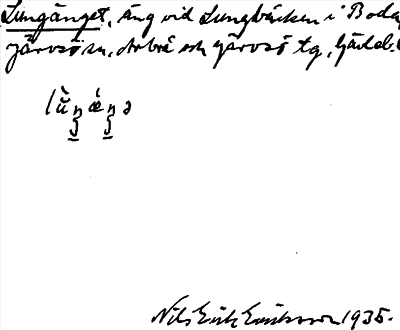 Lungänget, äng vid Lungbäcken i Boda,
Järvsö sn, Arbrå och Järvsö tg,
Nils Erik Eriksson 1935.